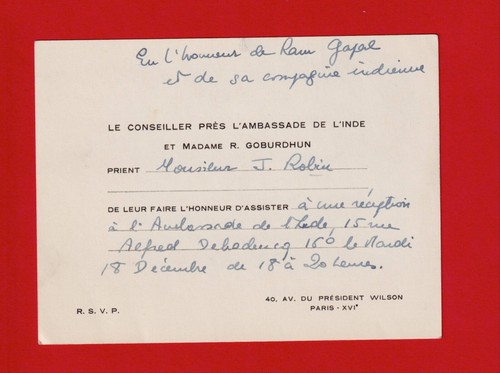 En l'honneur de Ram Gopal
et de sa compagnie indienne
LE CONSEILLER PRÈS L'AMBASSADE DE L'INDE
ET MADAME R. GOBURDHUN
PRIENT Monsieur J. Robin
DE LEUR FAIRE L'HONNEUR D'ASSISTER à une réception
à l'Ambassade de l'Inde, 15 rue
Alfred Dehodencq 16° le Mardi
18 Décembre de 18 à 20 heures.
40, AV. DU PRÉSIDENT WILSON
R. S. V. P.
PARIS - XVIᵉ